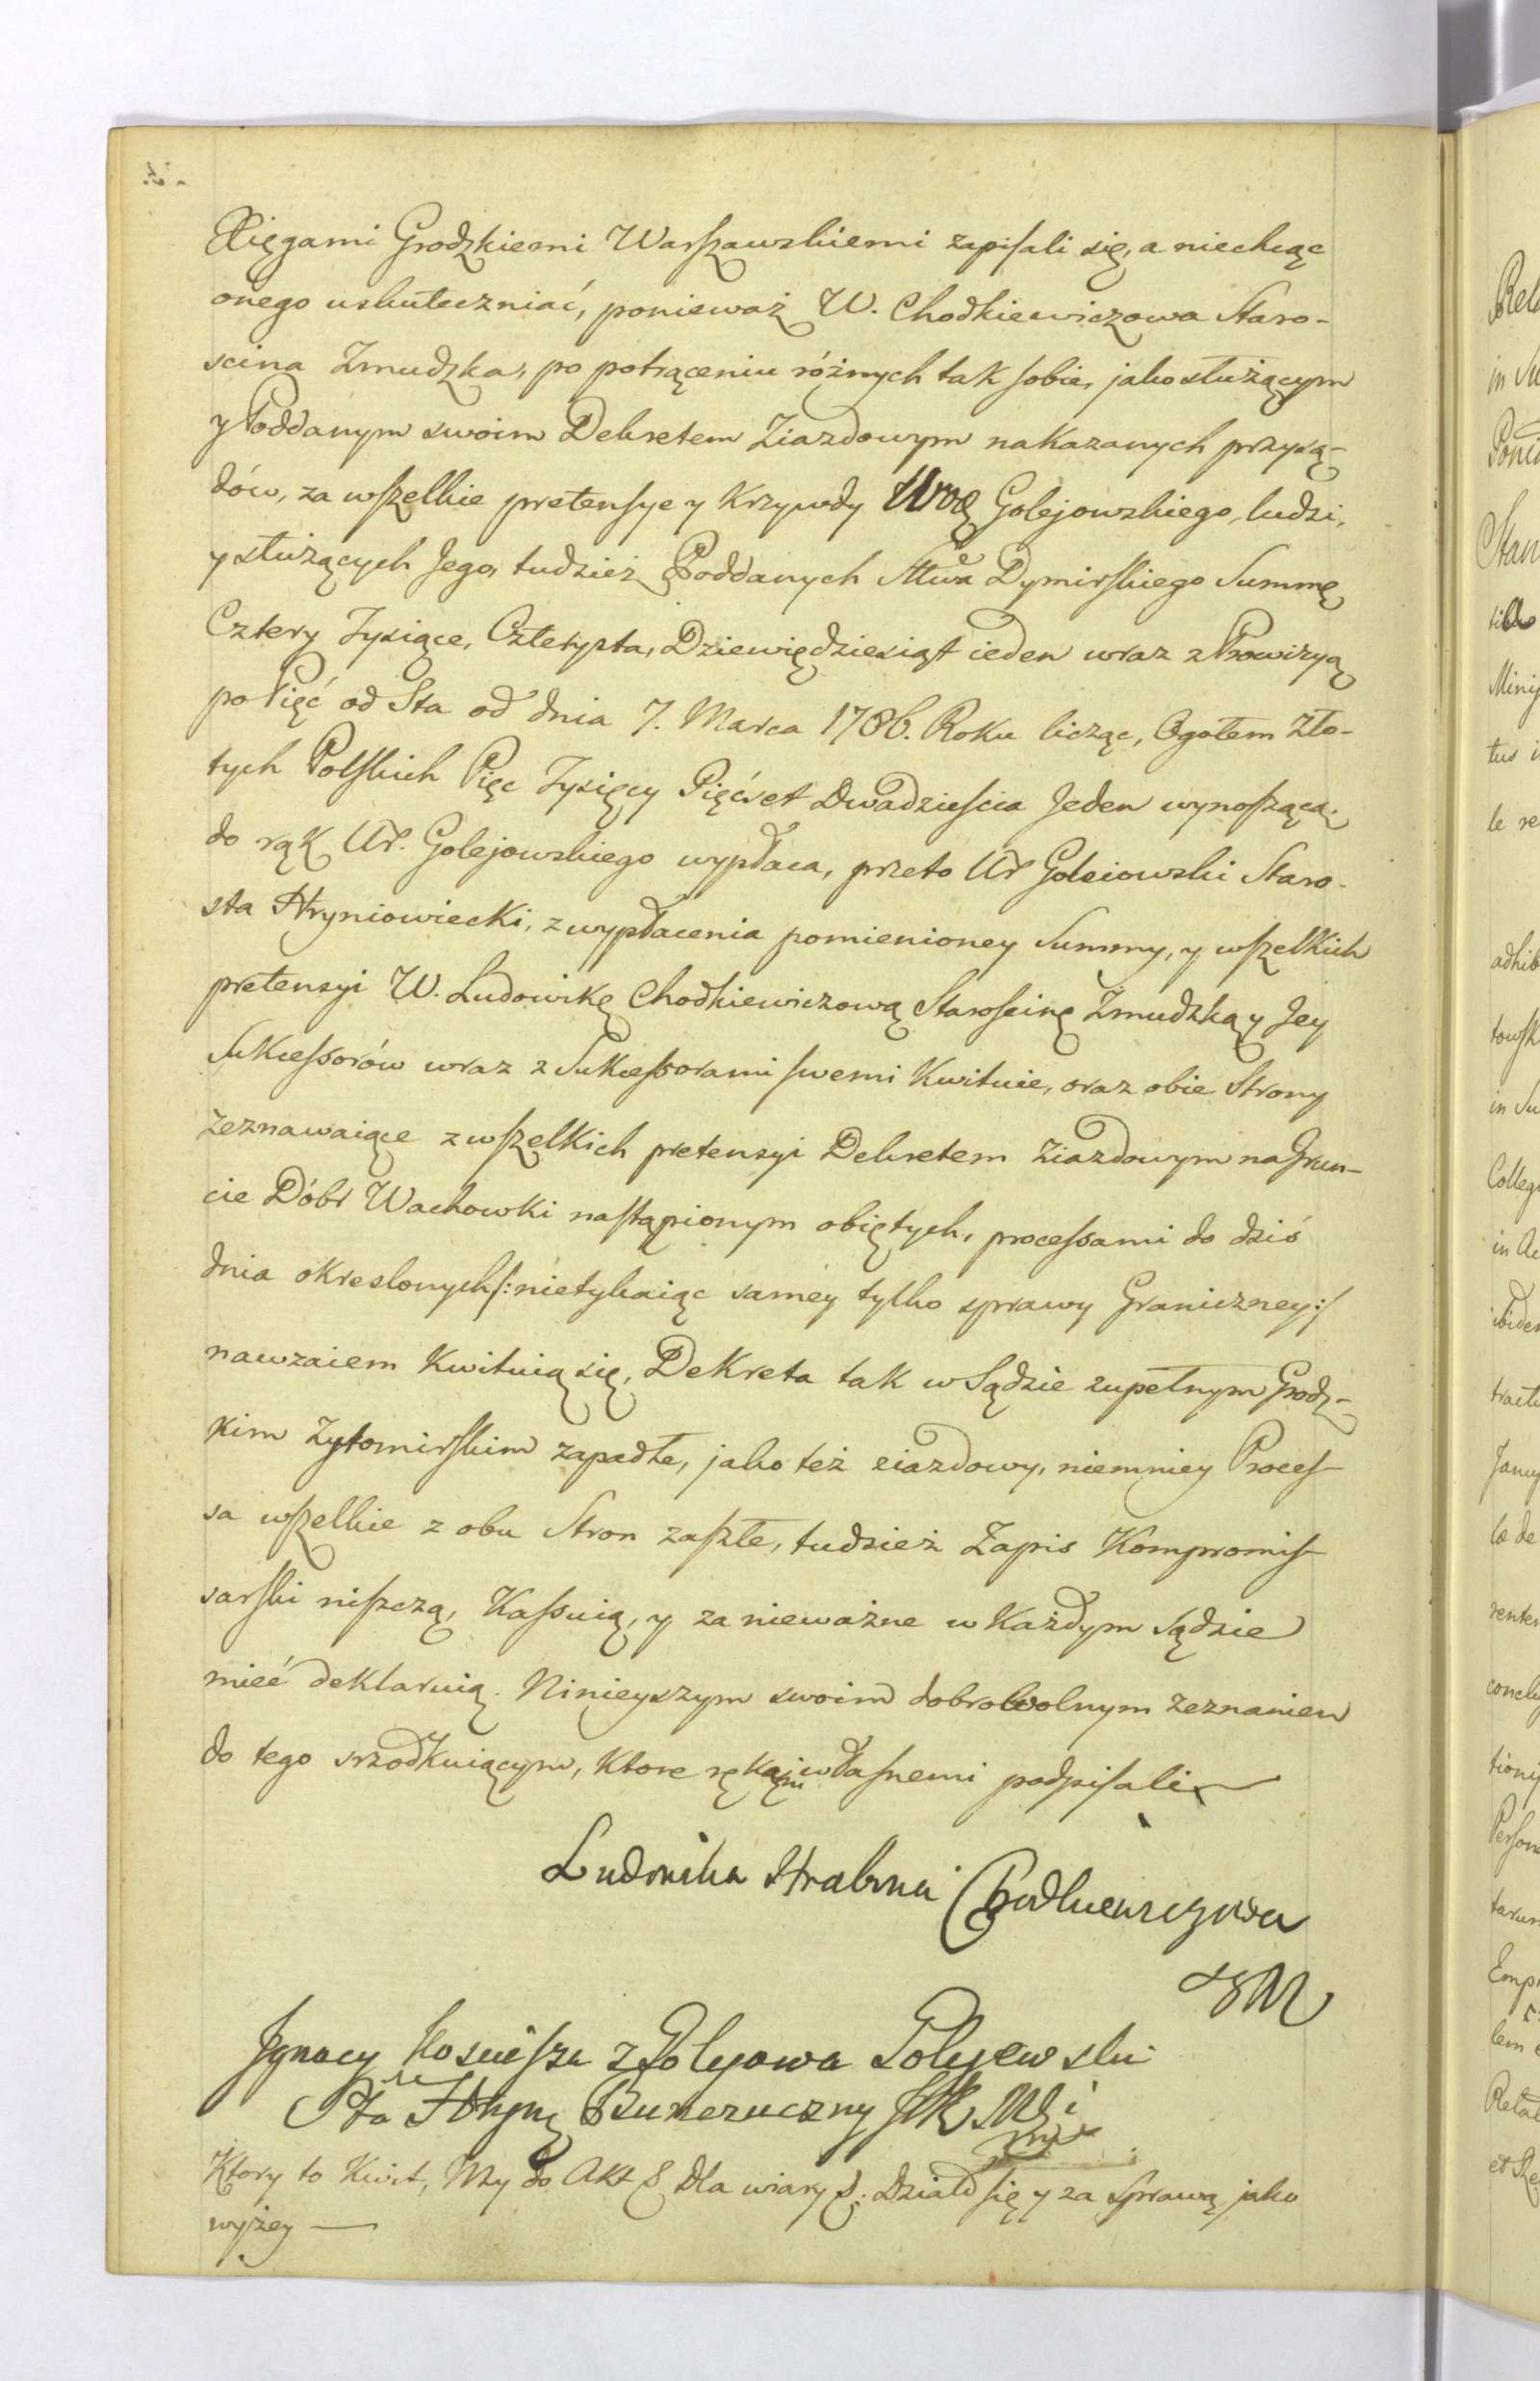 Xięgami Grodzkiemi Warszawskiemi zapisali się, a niechcąc
onego uskuteczniać, ponieważ W. Chodkiewiczowa Staro-
scina Zmudzka, po potrąceniu różnych tak sobie, jako służącym
y Poddanym swoim Dekretem Ziazdowym nakazanych przysą-
dów, za wszelkie pretensye y Krzywdy Urog Golejowskiego, ludzi,
y służących Jego, tudzież Poddanych Sttwa Dymirskiego Summę
Cztery Tysiące, Czterysta, Dziewiędziesiąt ieden wraz z Prowizyą
po Pięć od Sta od dnia 7. Marca 1786. Roku licząc, Ogołem Zło-
tych Polskich Pięc Tysięcy Pięćset Dwadziescia Jeden wynoszącą,
do rąk Ur. Golejowskiego wypłaca, przeto Ur Goleiowski Staro-
sta Hryniowiecki, z wypłacenia pomienioney Summy, y wszelkich
pretensyi W. Ludowikę Chodkiewiczową Staroscinę Zmudzką y Jey
Sukcessorów wraz z Sukcessorami swemi Kwituie, oraz obie Strony
zeznawaiące z wszelkich pretensyi Dekretem Ziazdowym na Grun-
cie Dóbr Wachowki nastąpionym obiętych, processami do dziś
dnia okreslonych/: nietykaiąc samey tylko sprawy Graniczney:/
nawzaiem Kwituią się, Dekreta tak w Sądzie zupełnym Grodz-
kim Zytomirskim zapadłe, jako też ziazdowy, niemniey Proces-
sa wszelkie z obu Stron zaszłe, tudzież Zapis Kompromis-
sarski niszczą, Kassuią, y za nieważne w Każdym Sądzie
mieć deklaruią. Ninieyszym swoim dobrowolnym zeznaniem
do tego srzodkuiącym, ktore rękami własnemi podpisali
Ludwika Hrabina Chodkiewiczowa
SM
Jgnacy Kosciesza z Golejowa Golejewski
Sta Hryn
Ktory to Kwit, My do Akt S dla wiary S. Działo się y za Sprawą jako
wyżey